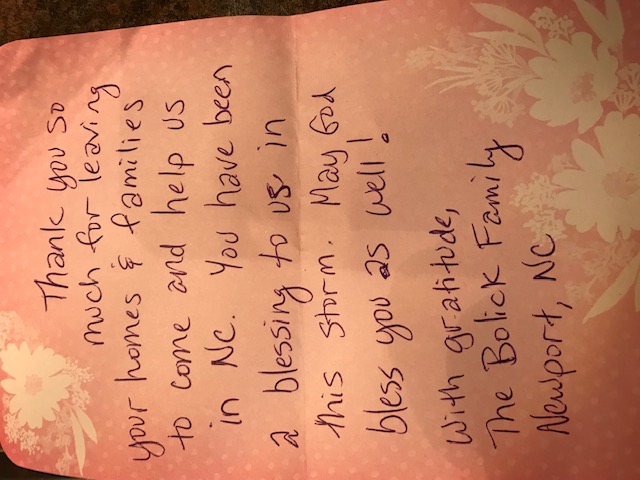 Thank you so
much for leaving
your homes & families
to come and help us
in NC. You have been
a blessing to us in
this storm. May God
bless you as well!
With gratitude,
The Bolick Family
Newport, NC